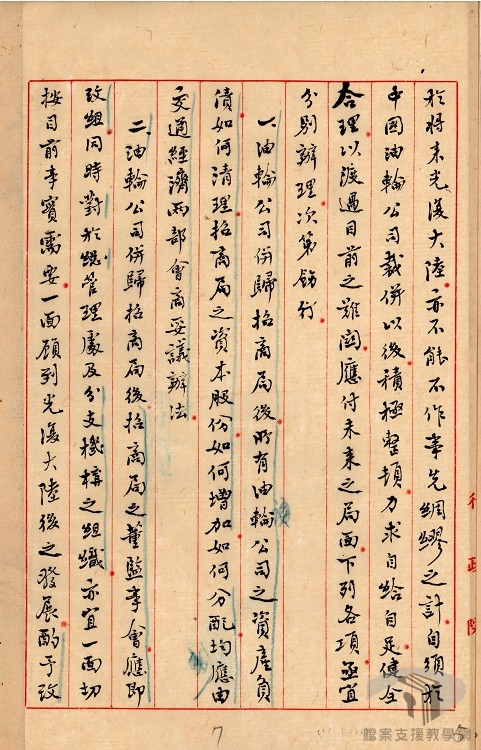 於將來光復大陸亦不能不作事先綢繆之計自須於
中國油輪公司裁併以後積極整頓力求自給自足健全
合理以渡過目前之難關應付未來之局面下列各項亟宜
分別辦理次第飭行
一、油輪公司併歸招商局後所有油輪公司之資產負
債如何清理招商局之資本股份如何增加如何分配均應由
交通經濟兩部會商妥議辦法
二、油輪公司併歸招商局後招商局之董監事會應即
改組同時對於總管理處及分支機構之組織亦宜一面切
按目前事實需要一面顧到光復大陸後之發展酌予改
行政院
7
5
檔案支援教學網